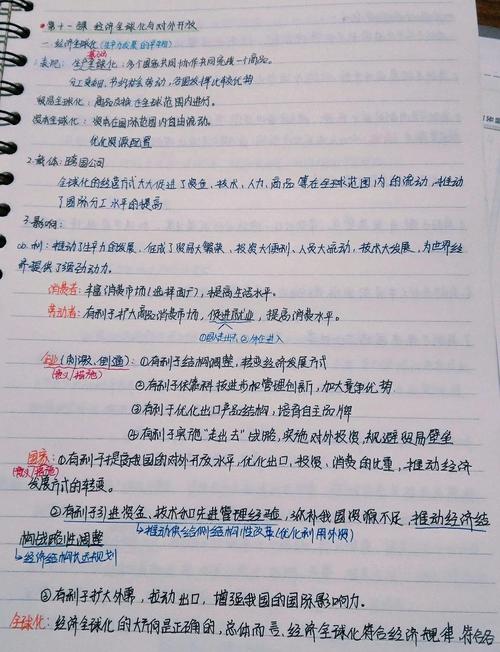 第十一课 经济全球化与对外开放
一.经济全球化(生产力发展的
1.表现: 生产全球化: 多个国家共同协作共同完成一个商品。
分工更细,节约社会劳动,各国发挥比较优势
贸易全球化: 商品交换在全球范围内进行。
资本全球化: 资本在国际范围内自由流动。
优化资源配置
2.载体: 跨国公司
全球化的经营方式大大促进了资金、技术、人力、商品等在全球范围内的流动,推动
了国际分工水平的提高
3.影响:
(1).利: 推动了生产力的发展,促成了贸易大繁荣、投资大便利、人员大流动,技术大发展,为世界经
济提供了强劲动力。
消费者: 丰富消费市场(选择面广),提高生活水平。
劳动者: 有利于扩大商品消费市场,促进就业,提高消费水平。
①国人走出去 ②外企进入
企业(刺激、倒逼): ①有利于结构调整,转变经济发展方式
(意义/措施)
②有利于依靠科技进步和管理创新,加大竞争优势
③有利于优化出口产品结构,培育自主品牌
④有利于实施“走出去”战略,实施对外投资,规避贸易壁垒
国家: ①有利于提高我国的对外开放水平,优化出口、投资、消费的比重,推动经济
(意义/措施)
发展方式的转变。
②有利于引进资金、技术和先进管理经验,弥补我国资源不足,推动经济结
构战略性调整
推动供给侧结构性改革(优化利用外资)
经济结构长远规划
③有利于扩大外需,拉动出口,增强我国的国际影响力。
全球化: 经济全球化的大方向是正确的,总体而言、经济全球化符合经济规律,符合各